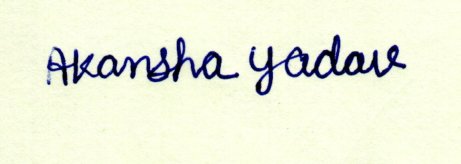 Akansha Yadav